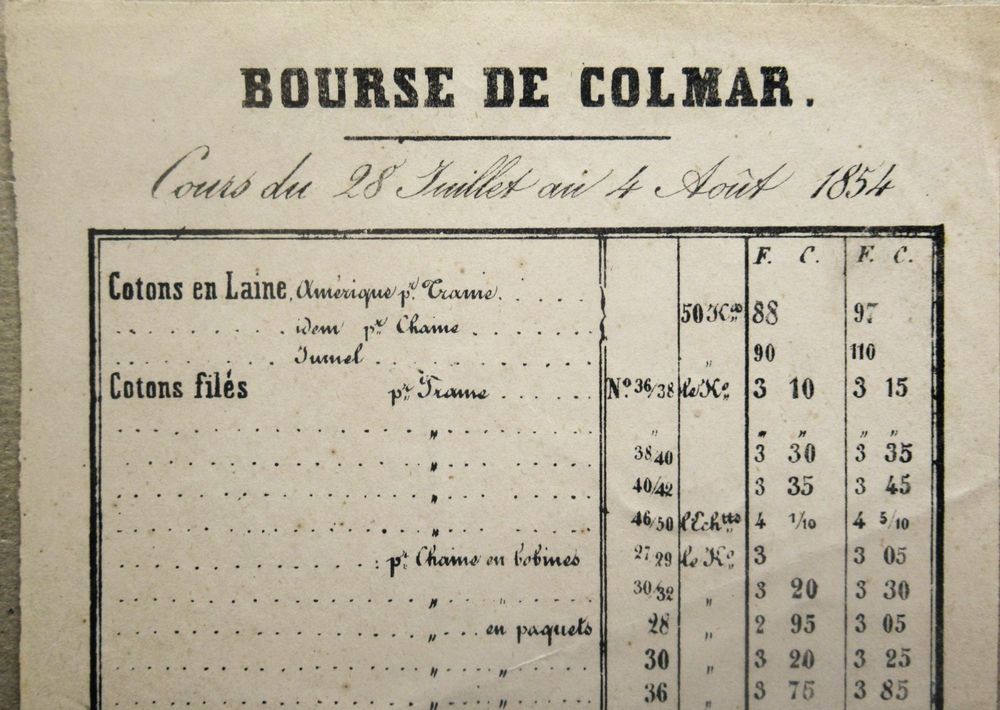 BOURSE DE COLMAR.
Cours du 28 Juillet au 4 Août 1854
F. C. F. C.
Cotons en Laine, Amérique pr. Trame. . . . . .
. . . . . . . . . . . idem pr. Chaine . . . . . . . 50 Kos 88 97
. . . . . . . . . . . Jumel . . . . . . . . . . . . . . „ 90 110
Cotons filés pr. Trame . . . . . . No. 36/38 le Ko. 3 10 3 15
. . . . . . . . . . . . . . . . „ . . . . . . . . „ „ „ „ „
. . . . . . . . . . . . . . . . „ . . . . . . . . 38/40 3 30 3 35
. . . . . . . . . . . . . . . . „ . . . . . . . . 40/42 3 35 3 45
. . . . . . . . . . . . . . . . „ . . . . . . . . 46/50 l'Echtte 4 1/10 4 5/10
. . . . . . . . . . . . . : pr. Chaine en bobines 27/29 le Ko. 3 3 05
. . . . . . . . . . . . . . . . „ . . . „ . . . . 30/32 „ 3 20 3 30
. . . . . . . . . . . . . . . . „ . . . en paquets 28 „ 2 95 3 05
. . . . . . . . . . . . . . . . „ . . . „ . . . . 30 „ 3 20 3 25
. . . . . . . . . . . . . . . . „ . . . „ . . . . 36 „ 3 75 3 85